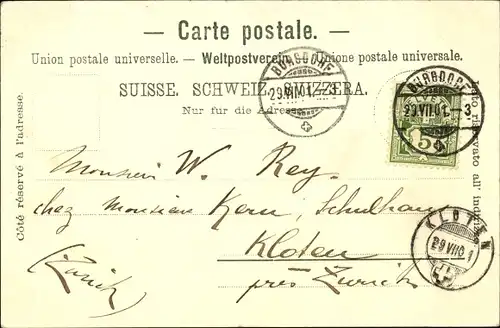 — Carte postale. —
Union postale universelle. — Weltpostverein. — Unione postale universale.
SUISSE. SCHWEIZ. SVIZZERA.
Nur für die Adresse.
Côté réservé à l'adresse.
Lato riservato all' indirizzo
BURGDORF
29.VII.01.–3
BURGDORF
29.VII.01.–3
HELVETIA
5
KLOTEN
29 VII 01
Monsieur W. Rey.
chez Monsieur Kern, Schulhaus
Kloten
près Zurich
(Zürich)